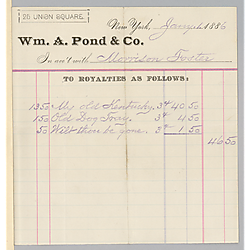 25 UNION SQUARE.
New York, Jany 1886
Wm. A. Pond & Co.
In acc't with Morrison Foster
TO ROYALTIES AS FOLLOWS:
1350 My old Kentucky. 3¢ 40.50
150 Old Dog Tray. 3¢ 4.50
50 Wilt thou be gone. 3¢ 1.50
46.50